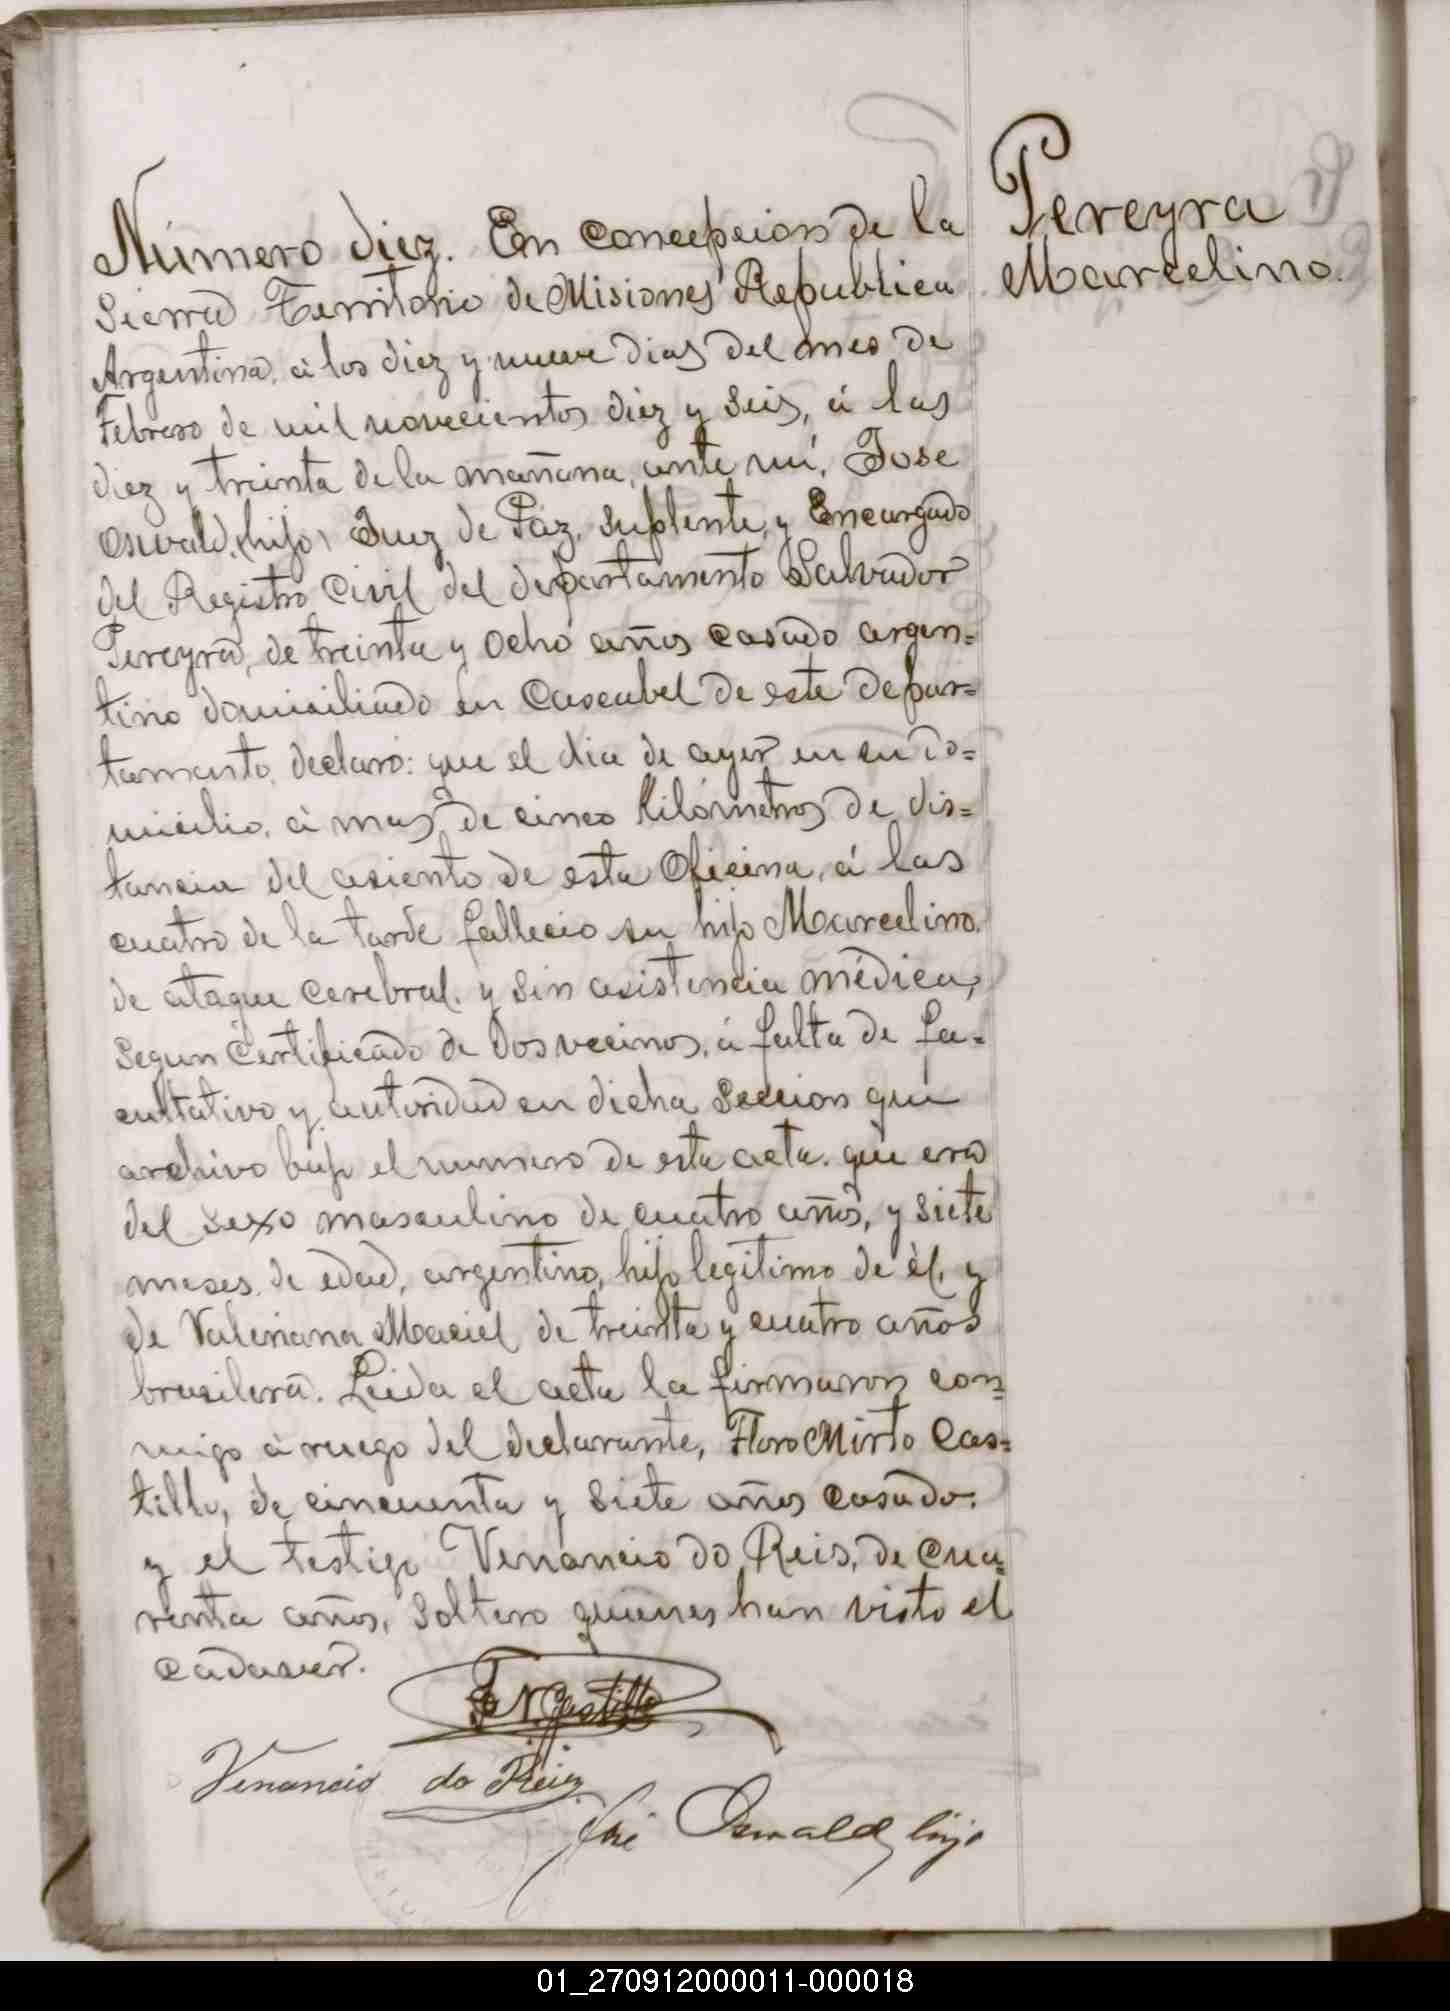 Pereyra
Marcelino.
Número diez. En Concepcion de la
Sierra Territorio de Misiones Republica
Argentina, á los diez y nueve dias del mes de
Febrero de mil novecientos diez y seis, á las
diez y treinta de la mañana, ante mí, Jose
Oswald, (hijo) Juez de Paz, Suplente, y Encargado
del Registro Civil del departamento Salvador
Pereyra, de treinta y ocho años casado argen=
tino domiciliado en Cascabel de este depar=
tamento, declaró: que el dia de ayer en su do=
micilio, á mas de cinco Kilómetros de dis=
tancia del asiento de esta Oficina, á las
cuatro de la tarde fallecio su hijo Marcelino.
de ataque cerebral. y sin asistencia médica,
segun Certificado de dos vecinos, á falta de fa=
cultativo y autoridad en dicha Seccion que
archivo bajo el numero de esta acta. que era
del sexo masculino de cuatro años, y siete
meses de edad, argentino, hijo legítimo de él, y
de Valeriana Maciel de treinta y cuatro años
brasilera. Leida el acta la firmaron con=
migo á ruego del declarante, Floro Mirto Cas=
tillo, de cincuenta y siete años casado.
y el testigo Venancio do Reis, de cua=
renta años, soltero quienes han visto el
cadaver.
Castillo
Venancio do Reiz
José Oswald hijo
01_270912000011-000018